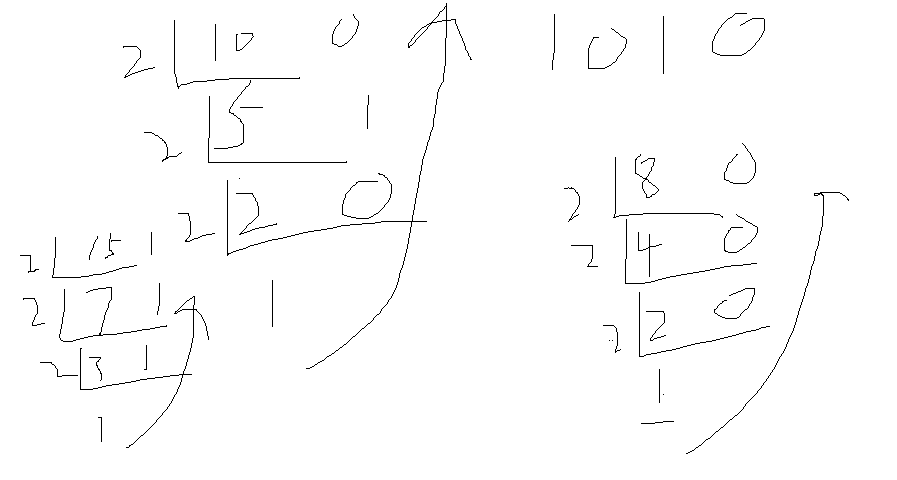 2 10 0
2 5 1
2 2 0
1
1010
2 15 1
2 7 1
2 3 1
1
2 8 0
2 4 0
2 2 0
1